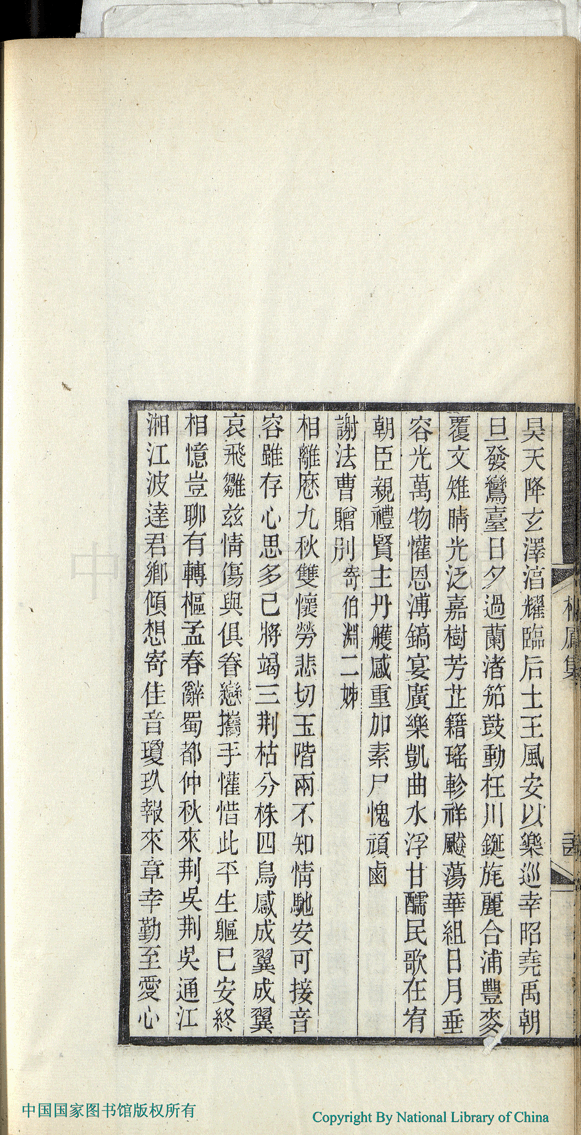 昊天降玄澤滀耀臨后土王風安以樂巡幸昭堯禹朝
旦發鸞臺日夕過蘭渚笳鼓動枉川鋋旄麗合浦豐麥
覆文雉晴光泛嘉樹芳芷籍瑤軫祥飈蕩華組日月垂
容光萬物懽恩溥鎬宴廣樂凱曲水浮甘醹民歌在宥
朝臣親禮賢主丹雘感重加素尸愧頑鹵
謝法曹贈別寄伯淵二姊
相離歷九秋雙懷勞悲切玉階兩不知情馳安可接音
容雖存心思多已將竭三荆枯分株四鳥感成翼成翼
哀飛雛兹情傷與俱眷戀攜手懽惜此平生軀已安終
相憶豈聊有轉樞孟春辭蜀都仲秋來荆吳荆吳通江
湘江波達君鄉傾想寄佳音瓊玖報來章幸勤至愛心
集
中国国家图书馆版权所有
Copyright By National Library of China